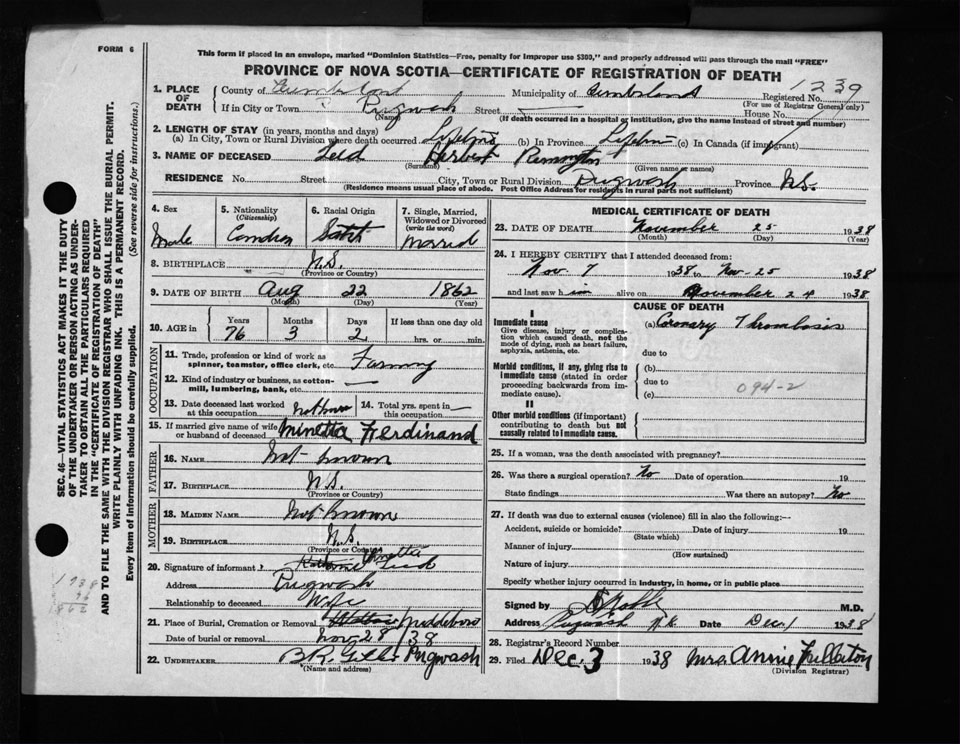 FORM 6
This form if placed in an envelope, marked "Dominion Statistics—Free, penalty for improper use $300," and properly addressed will pass through the mail "FREE"
PROVINCE OF NOVA SCOTIA—CERTIFICATE OF REGISTRATION OF DEATH
1. PLACE OF DEATH
County of Cumberland Municipality of Cumberland Registered No. 1239
(For use of Registrar General only)
If in City or Town Pugwash Street — House No.
(Name) (If death occurred in a hospital or institution, give the name instead of street and number)
2. LENGTH OF STAY (in years, months and days)
(a) In City, Town or Rural Division where death occurred Lifetime (b) In Province Lifetime (c) In Canada (if immigrant)
3. NAME OF DECEASED Herbert Remington
(Surname) (Given name or names)
RESIDENCE No. Street City, Town or Rural Division Pugwash Province N.S.
(Residence means usual place of abode. Post Office Address for residents in rural parts not sufficient)
4. Sex Male
5. Nationality (Citizenship) Canadian
6. Racial Origin Scotch
7. Single, Married, Widowed or Divorced (write the word) Married
8. BIRTHPLACE N.S.
(Province or Country)
9. DATE OF BIRTH Aug 22 1862
(Month) (Day) (Year)
10. AGE in Years Months Days If less than one day old
76 3 2 hrs. or min.
OCCUPATION
11. Trade, profession or kind of work as spinner, teamster, office clerk, etc. Farming
12. Kind of industry or business, as cotton-mill, lumbering, bank, etc. —
13. Date deceased last worked at this occupation Not known
14. Total yrs. spent in this occupation —
15. If married give name of wife or husband of deceased Minetta Ferdinand
FATHER
16. NAME Not known
17. BIRTHPLACE N.S.
(Province or Country)
MOTHER
18. MAIDEN NAME Not known
19. BIRTHPLACE N.S.
(Province or Country)
20. Signature of informant Minetta
Address Pugwash
Relationship to deceased Wife
21. Place of Burial, Cremation or Removal Middleboro
Date of burial or removal Nov 28 / 38
22. UNDERTAKER B R Pugwash
(Name and address)
MEDICAL CERTIFICATE OF DEATH
23. DATE OF DEATH November 25 1938
(Month) (Day) (Year)
24. I HEREBY CERTIFY that I attended deceased from:
Nov 7 1938 to Nov-25 1938
and last saw him alive on November 24 1938
CAUSE OF DEATH
I
Immediate cause (a) Coronary Thrombosis
Give disease, injury or complication which caused death, not the mode of dying, such as heart failure, asphyxia, asthenia, etc.
due to
Morbid conditions, if any, giving rise to immediate cause (stated in order proceeding backwards from immediate cause).
(b)
due to 094-2
(c)
II
Other morbid conditions (if important) contributing to death but not causally related to immediate cause.
25. If a woman, was the death associated with pregnancy?
26. Was there a surgical operation? No Date of operation 19
State findings Was there an autopsy? No
27. If death was due to external causes (violence) fill in also the following:—
Accident, suicide or homicide? Date of injury 19
(State which)
Manner of injury
(How sustained)
Nature of injury
Specify whether injury occurred in industry, in home, or in public place
Signed by M.D.
Address Pugwash N.S. Date Dec. 1 1938
28. Registrar's Record Number
29. Filed Dec. 3 1938 Mrs. Annie Fullerton
(Division Registrar)
SEC. 46—VITAL STATISTICS ACT MAKES IT THE DUTY
OF THE UNDERTAKER OR PERSON ACTING AS UNDER-
TAKER TO OBTAIN ALL THE PARTICULARS REQUIRED
IN THE "CERTIFICATE OF REGISTRATION OF DEATH"
AND TO FILE THE SAME WITH THE DIVISION REGISTRAR WHO SHALL ISSUE THE BURIAL PERMIT.
WRITE PLAINLY WITH UNFADING INK. THIS IS A PERMANENT RECORD.
Every item of information should be carefully supplied. (See reverse side for instructions.)
1938
76
1862